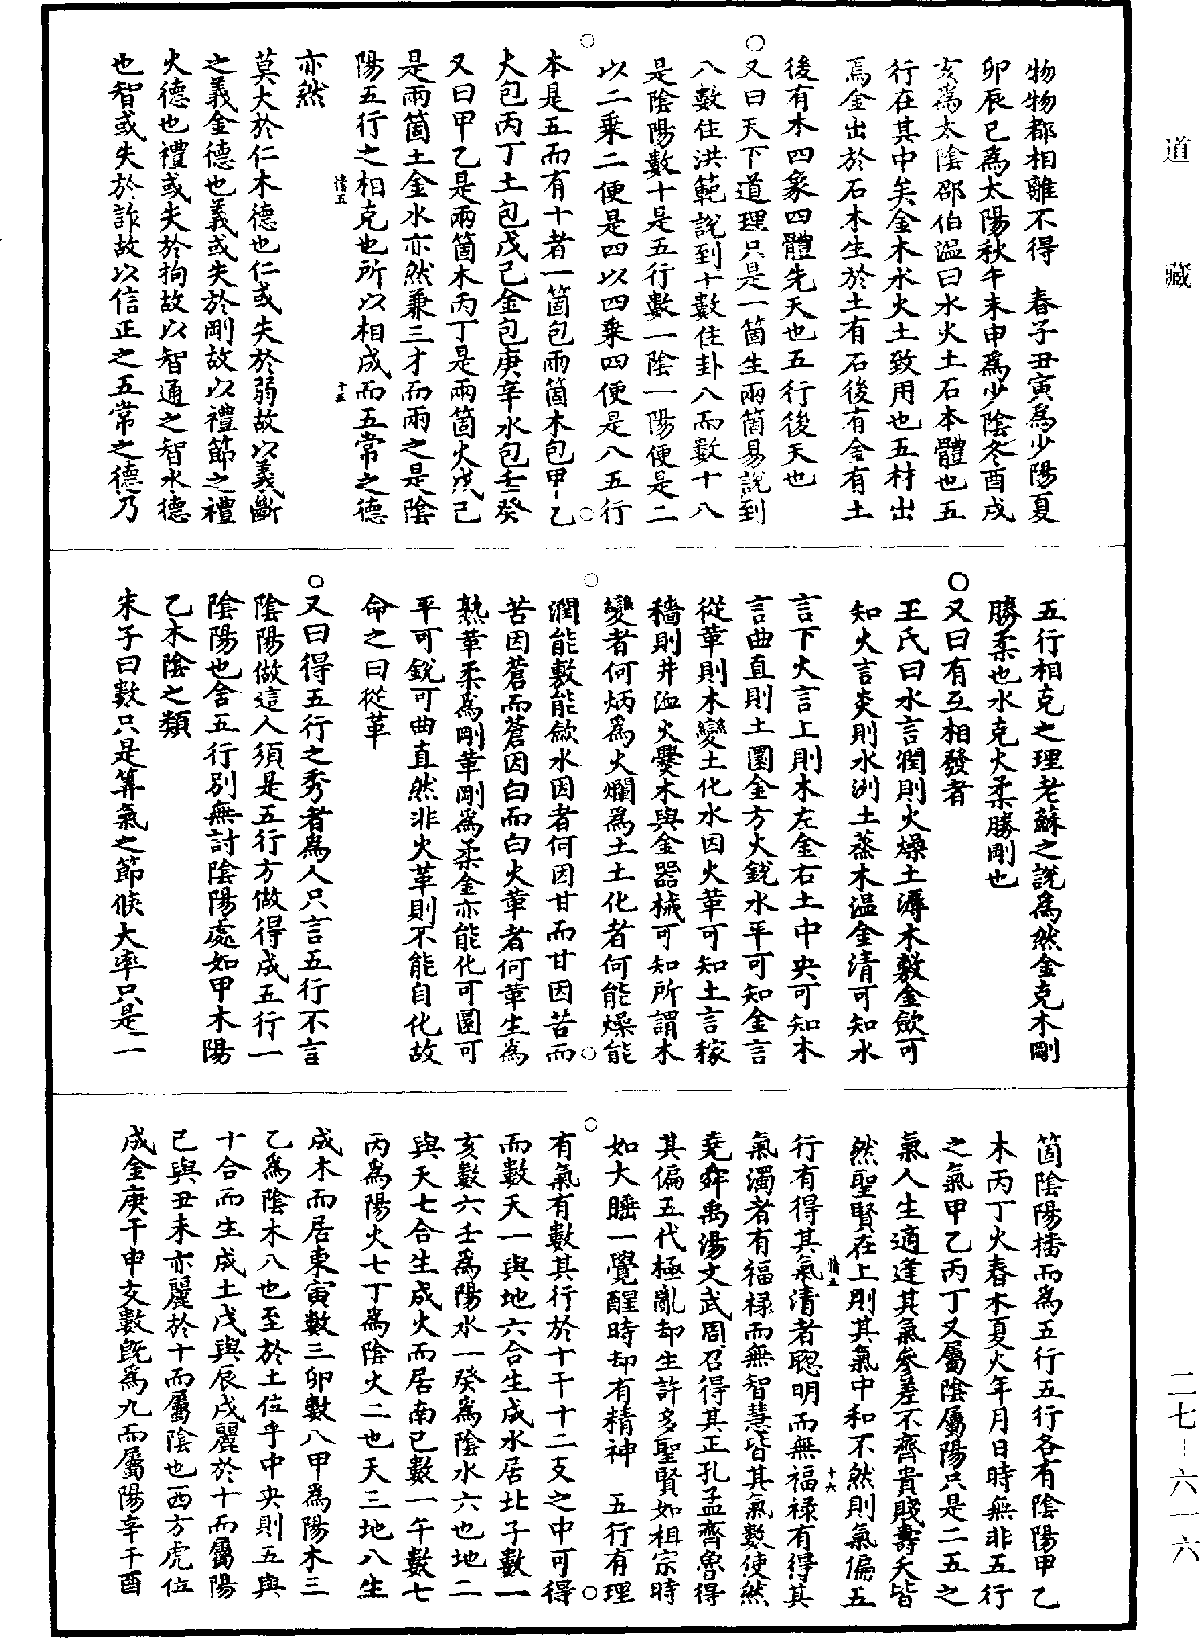 道藏
物物都相離不得　春子丑寅為少陽夏
卯辰巳為太陽秋午未申為少陰冬酉戌
亥為太陰邵伯溫曰水火土石本體也五
行在其中矣金木水火土致用也五材出
焉金出於石木生於土有石後有金有土
後有木四象四體先天也五行後天也
○又曰天下道理只是一箇生兩箇易說到
八數住洪範說到十數住卦八而數十八
是陰陽數十是五行數一陰一陽便是二
以二乘二便是四以四乘四便是八五行
本是五而有十者一箇包兩箇木包甲乙
火包丙丁土包戊己金包庚辛水包壬癸
又曰甲乙是兩箇木丙丁是兩箇火戊己
是兩箇土金水亦然兼三才而兩之是陰
陽五行之相克也所以相成而五常之德
亦然
莫大於仁木德也仁或失於弱故以義斷
之義金德也義或失於剛故以禮節之禮
火德也禮或失於拘故以智通之智水德
也智或失於詐故以信正之五常之德乃
五行相克之理老蘇之說為然金克木剛
勝柔也水克火柔勝剛也
○又曰有互相發者
王氏曰水言潤則火燥土溽木敷金斂可
知火言炎則水洌土蒸木溫金清可知水
言下火言上則木左金右土中央可知木
言曲直則土圜金方火銳水平可知金言
從革則木變土化水因火革可知土言稼
穡則井洫火爨木與金器械可知所謂木
變者何炳為火爛為土土化者何能燥能
潤能敷能斂水因者何因甘而甘因苦而
苦因蒼而蒼因白而白火革者何革生為
熟革柔為剛革剛為柔金亦能化可圓可
平可銳可曲直然非火革則不能自化故
命之曰從革
○又曰得五行之秀者為人只言五行不言
陰陽做這人須是五行方做得成五行一
陰陽也舍五行別無討陰陽處如甲木陽
乙木陰之類
朱子曰數只是算氣之節候大率只是一
箇陰陽播而為五行五行各有陰陽甲乙
木丙丁火春木夏火年月日時無非五行
之氣甲乙丙丁又屬陰屬陽只是二五之
氣人生適逢其氣參差不齊貴賤壽夭皆
然聖賢在上則其氣中和不然則氣偏五
行有得其氣清者聰明而無福祿有得其
氣濁者有福祿而無智慧皆其氣數使然
堯舜禹湯文武周召得其正孔孟齊魯得
其偏五代極亂却生許多聖賢如祖宗時
如大睡一覺醒時却有精神　五行有理
有氣有數其行於十干十二支之中可得
而數天一與地六合生成水居北子數一
亥數六壬為陽水一癸為陰水六也地二
與天七合生成火而居南巳數一午數七
丙為陽火七丁為陰火二也天三地八生
成木而居東寅數三卯數八甲為陽木三
乙為陰木八也至於土位乎中央則五與
十合而生成土戊與辰戌麗於十而屬陽
己與丑未亦麗於十而屬陰也西方虎位
成金庚干申支數既為九而屬陽辛干酉
二七-六一六